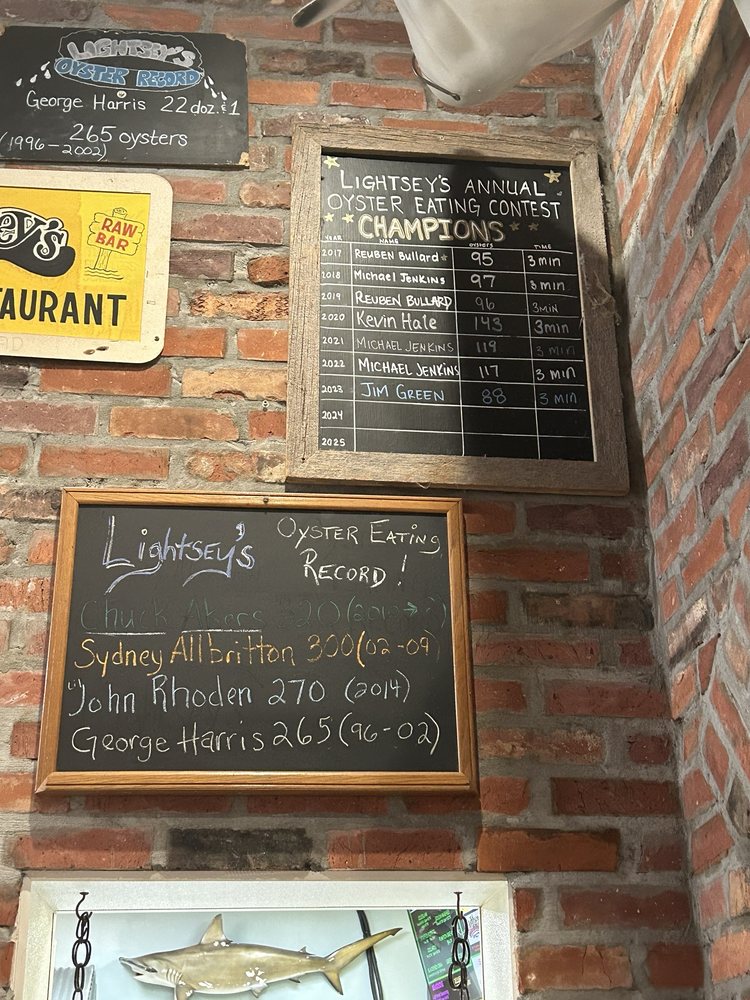 LIGHTSEY'S
OYSTER RECORD
George Harris 22 doz. & 1
265 oysters
(1996-2002)
RAW
BAR
LIGHTSEY'S ANNUAL
OYSTER EATING CONTEST
CHAMPIONS
YEAR NAME OYSTERS TIME
2017 REUBEN Bullard 95 3 min
2018 Michael JENKINS 97 3 min
2019 REUBEN BULLARD 96 3MIN
2020 Kevin Hale 143 3min
2021 MICHAEL JENKINS 119 3 min
2022 MICHAEL JENKINS 117 3 MIN
2023 JIM GREEN 88 3 MIN
2024
2025
Lightsey's OYSTER EATING
RECORD!
Chuck Akers 320
Sydney Allbritton 300 (02-09)
Lil' John Rhoden 270 (2014)
George Harris 265 (96-02)